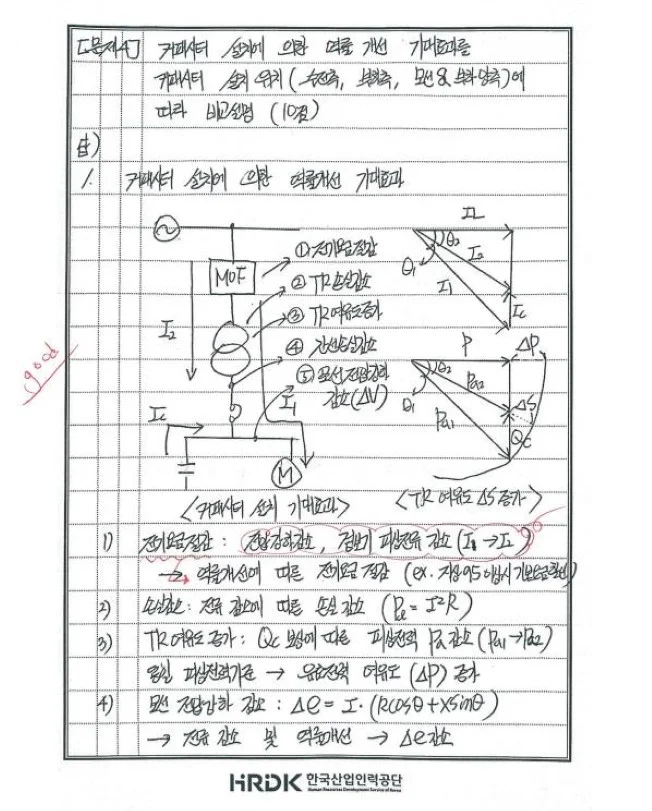 [문제4] 커패시터 설치에 의한 역률 개선 기대효과를
커패시터 설치 위치(수전측, 부하측, 모선 & 부하 양측)에
따라 비교설명 (10점)
답)
1. 커패시터 설치에 의한 역률개선 기대효과
MOF
① 전기요금절감
② TR손실감소
③ TR여유도증가
④ 간선손실감소
⑤ 모선 전압강하
감소(ΔV)
I₂
I₁
Ic
M
IL
θ₂
θ₁
I₂
I₁
Ic
P
ΔP
θ₂
θ₁
Pa2
Pa1
ΔS
Qc
good
<커패시터 설치 기대효과>
<TR 여유도 ΔS 증가>
1) 전기요금절감 : 전압강하감소, 피상전류 감소 (I₁→I₂)
→ 역률개선에 따른 전기요금 절감 (ex. 지상 95 이상시 기본요금
2) 손실감소 : 전류 감소에 따른 손실 감소 (Pl = I²R)
3) TR 여유도 증가 : Qc 보상에 따른 피상전력 Pa 감소 (Pa1→Pa2)
동일 피상전력기준 → 유효전력 여유도 (ΔP) 증가
4) 모선 전압강하 감소 : Δe = I·(Rcosθ+Xsinθ)
→ 전류 감소 및 역률개선 → Δe감소
HRDK 한국산업인력공단
Human Resources Development Service of Korea